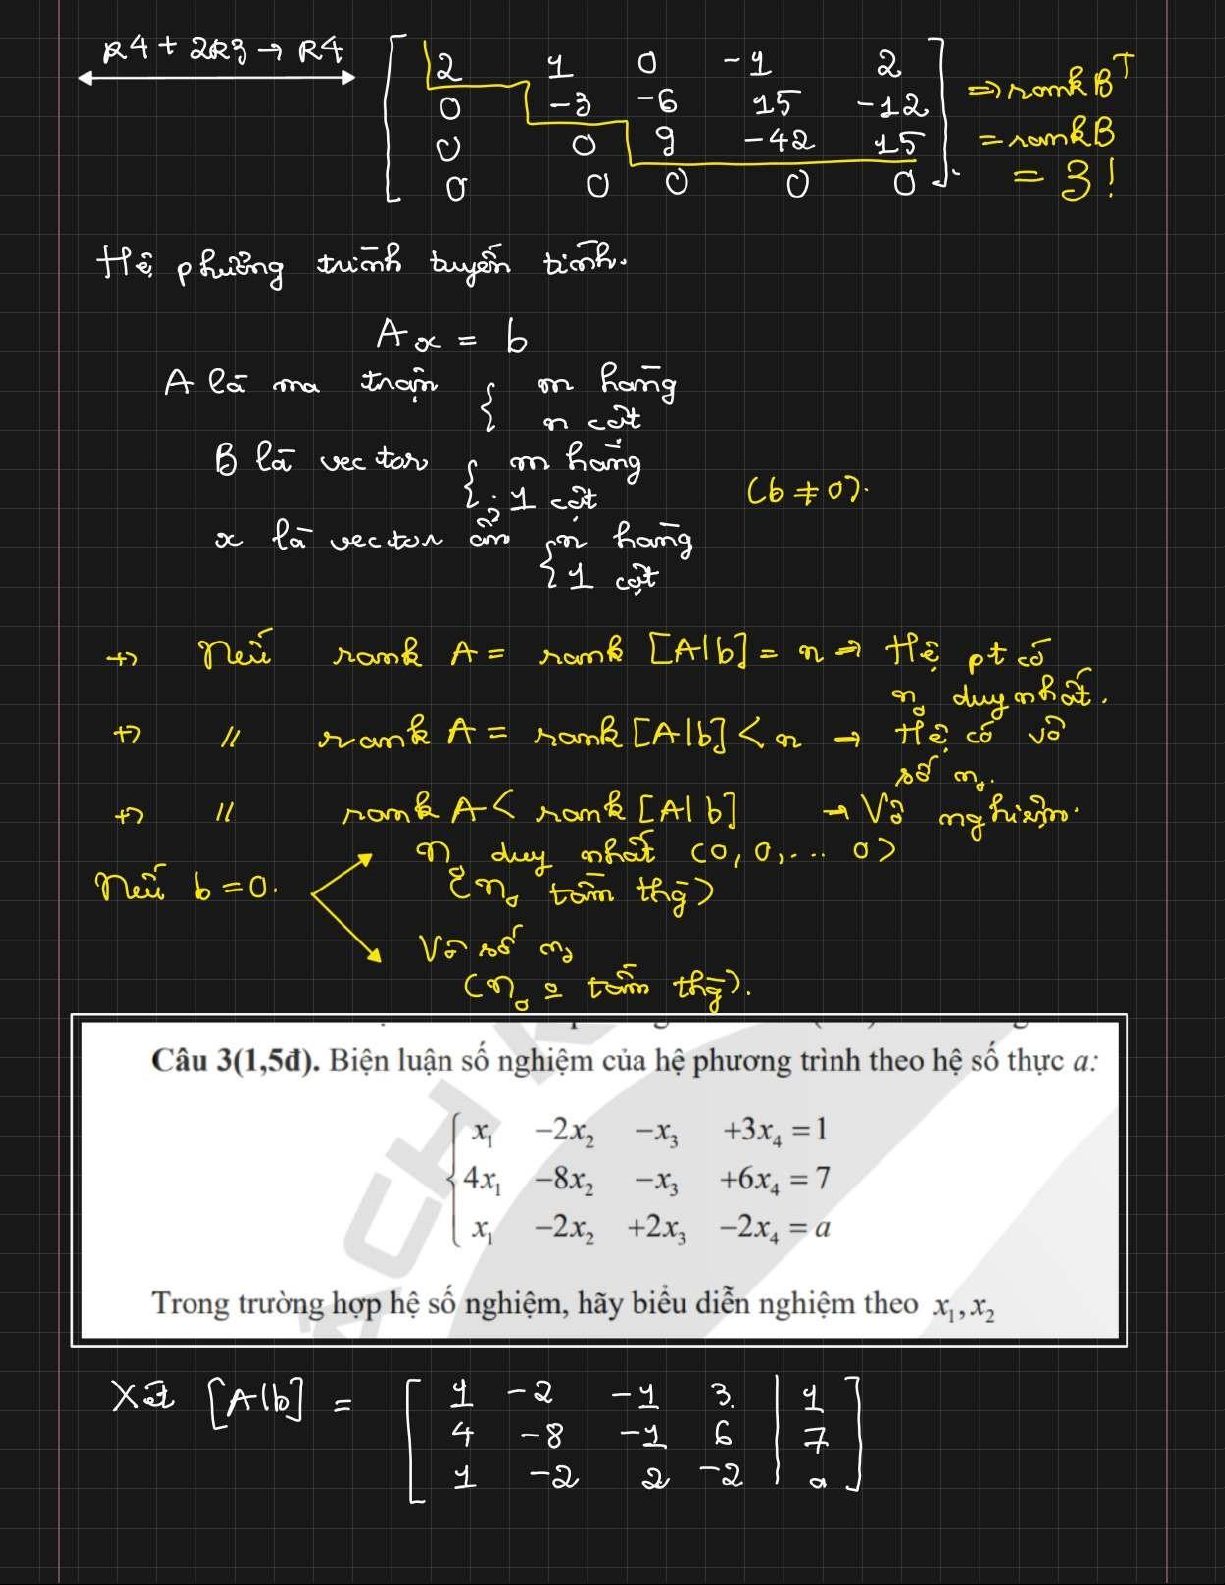 R4 + 2R3 → R4
[ 2 1 0 -1 2
0 -3 -6 15 -12
0 0 9 -42 15
0 0 0 0 0 ].
⇒ rank Bᵀ
= rank B
= 3!
Hệ phương trình tuyến tính.
Ax = b
A là ma trận { m hàng
n cột
B là vector { m hàng
1 cột
(b ≠ 0).
x là vector ẩn { n hàng
1 cột
+) Nếu rank A = rank [A|b] = n → Hệ pt có
n₀ duy nhất.
+) // rank A = rank [A|b] < n → Hệ có vô
số n₀.
+) // rank A < rank [A|b] → Vô nghiệm.
Nếu b = 0.
n₀ duy nhất (0, 0, ... 0)
(n₀ tầm thg)
Vô số n₀
(n₀ o tầm thg).
Câu 3(1,5đ). Biện luận số nghiệm của hệ phương trình theo hệ số thực a:
x₁ -2x₂ -x₃ +3x₄ = 1
4x₁ -8x₂ -x₃ +6x₄ = 7
x₁ -2x₂ +2x₃ -2x₄ = a
Trong trường hợp hệ số nghiệm, hãy biểu diễn nghiệm theo x₁, x₂
Xét [A|b] = [ 1 -2 -1 3 | 1
4 -8 -1 6 | 7
1 -2 2 -2 | a ]